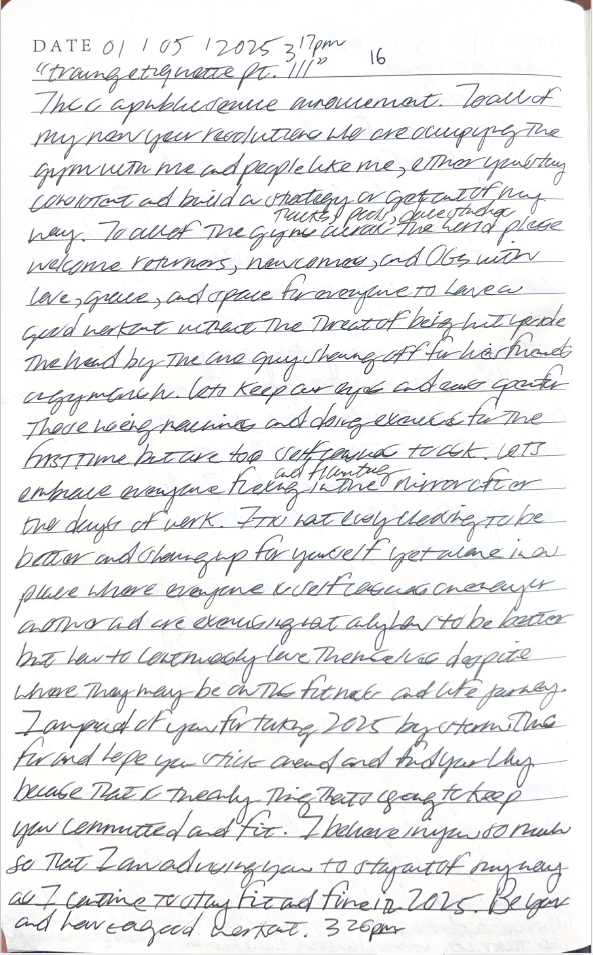 DATE 01 / 05 / 2025 3:17pm
16
"training etiquette pt. III"
This is a public service announcement. To all of
my new year revolutions who are occupying the
gym with me and people like me, either you stay
consistant and build a strategy or get out of my
tracks, pools, dance studios
way. To all of the gyms around the world please
welcome returners, newcomers, and OGs with
love, grace, and space for everyone to have a
good workout without the threat of being hit upside
the head by the one guy showing off for his friends
or gym crush. Lets keep our eyes and ears open for
those using machines and doing exercises for the
first time but are too self conscious to ask. Lets
and flaunting
embrace everyone flexing in the mirror after
the days of work. It is not easy to be
better and showing up for yourself yet alone in a
place where everyone is self conscious one way or
another and are exercising not only how to be better
but how to continuously love themselves despite
where they may be on this fitness and life journey.
I am proud of you for taking 2025 by storm thus
far and hope you stick around and find your why
because that is the only thing thats going to keep
you committed and fit. I believe in you so much
so that I am advising you to stay out of my way
as I continue to stay fit and fine in 2025. Be you
and have a good workout. 3:26pm